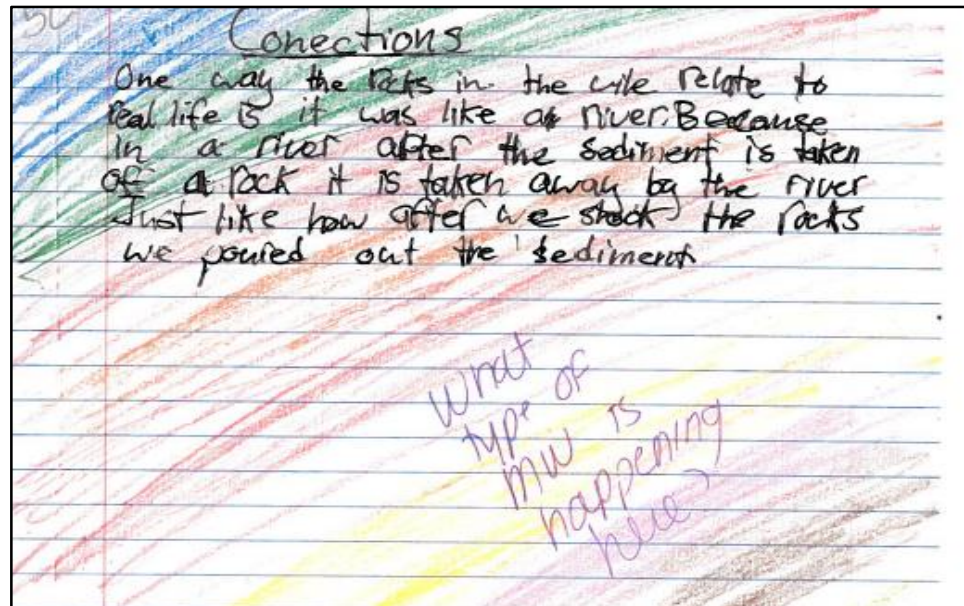 Conections
One way the rocks in the relate to
real life is it was like a river. Because
in a river after the sediment is taken
of a rock it is taken away by the river
Just like how after we shook the rocks
we poured out the sediment
What
type of
mw is
happening
here?